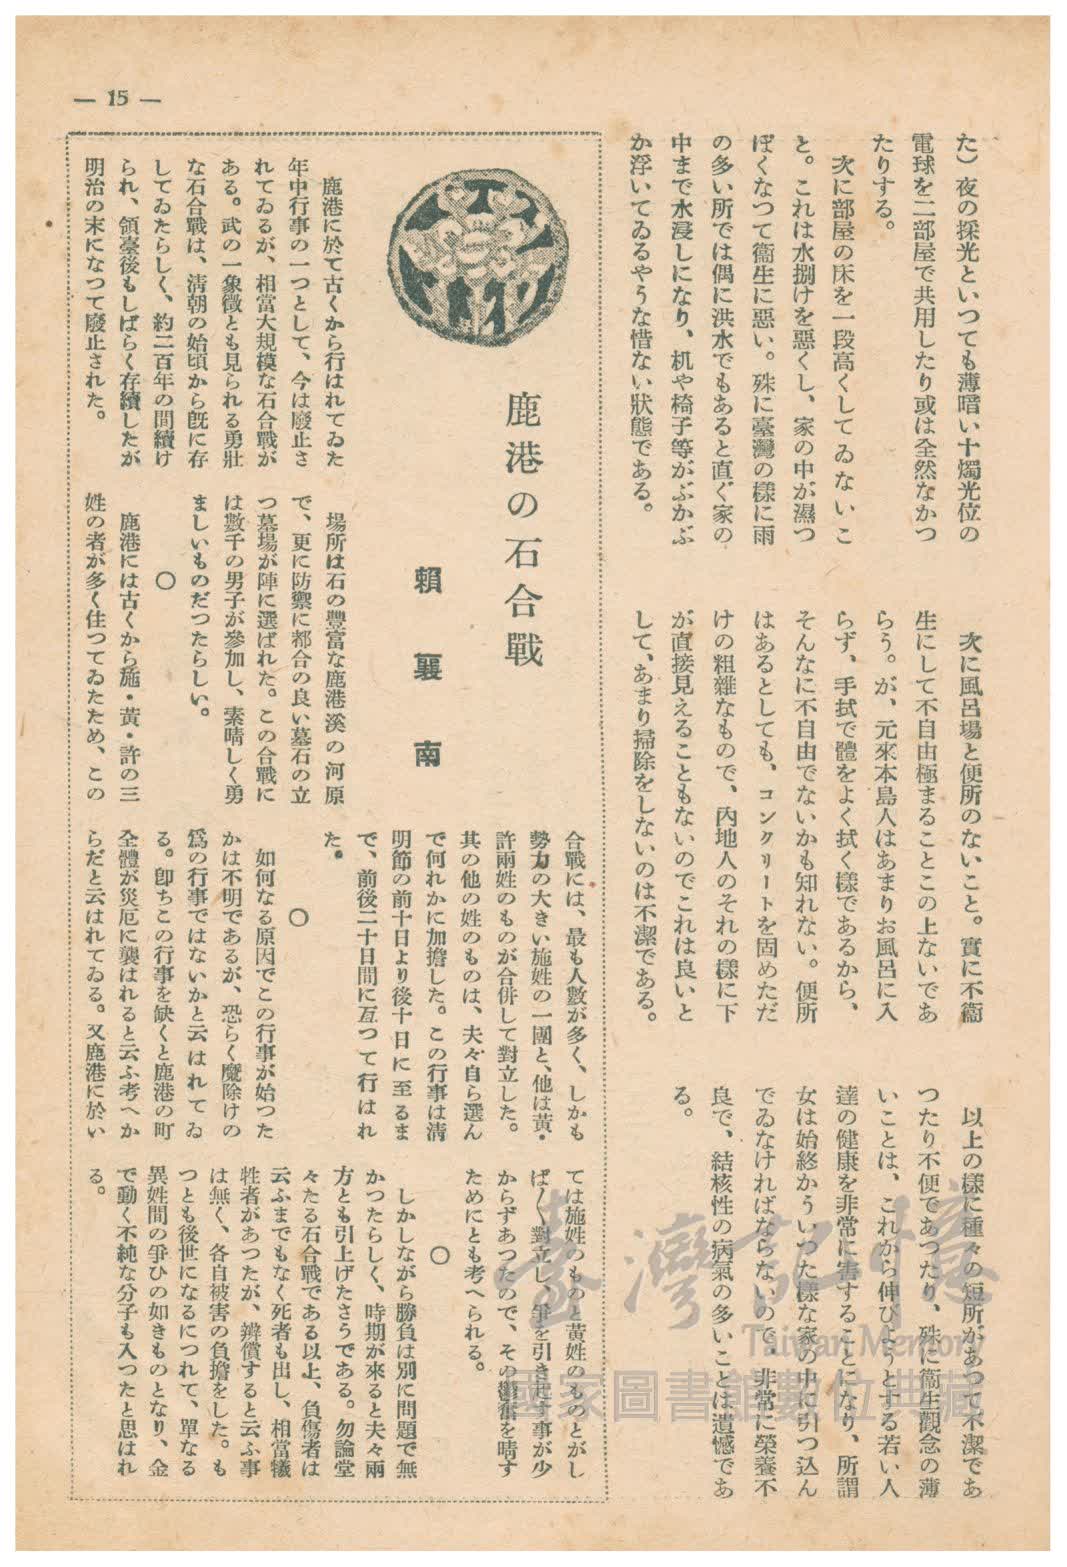 — 15 —
た）夜の採光といつても薄暗い十燭光位の
電球を二部屋で共用したり或は全然なかつ
たりする。
次に部屋の床を一段高くしてゐないこ
と。これは水捌けを惡くし、家の中が濕つ
ぽくなつて衞生に惡い。殊に臺灣の樣に雨
の多い所では偶に洪水でもあると直ぐ家の
中まで水浸しになり、机や椅子等がぷかぷ
か浮いてゐるやうな惜ない狀態である。
次に風呂場と便所のないこと。實に不衞
生にして不自由極まることこの上ないであ
らう。が、元來本島人はあまりお風呂に入
らず、手拭で體をよく拭く樣であるから、
そんなに不自由でないかも知れない。便所
はあるとしても、コンクリートを固めただ
けの粗雜なもので、內地人のそれの樣に下
が直接見えることもないのでこれは良いと
して、あまり掃除をしないのは不潔である。
以上の樣に種々の短所があつて不潔であ
つたり不便であつたり、殊に衞生觀念の薄
いことは、これから伸びようとする若い人
達の健康を非常に害することになり、所謂
女は始終かういつた樣な家の中に引つ込ん
でゐなければならないので、非常に榮養不
良で、結核性の病氣の多いことは遺憾であ
る。
鹿港の石合戰
賴襄南
鹿港に於て古くから行はれてゐた
年中行事の一つとして、今は廢止さ
れてゐるが、相當大規模な石合戰が
ある。武の一象徵とも見られる勇壯
な石合戰は、淸朝の始頃から旣に存
してゐたらしく、約二百年の間續け
られ、領臺後もしばらく存續したが
明治の末になつて廢止された。
場所は石の豐富な鹿港溪の河原
で、更に防禦に都合の良い墓石の立
つ墓場が陣に選ばれた。この合戰に
は數千の男子が參加し、素晴しく勇
ましいものだつたらしい。
○
鹿港には古くから施・黃・許の三
姓の者が多く住つてゐたため、この
合戰には、最も人數が多く、しかも
勢力の大きい施姓の一團と、他は黃・
許兩姓のものが合併して對立した。
其の他の姓のものは、夫々自ら選ん
で何れかに加擔した。この行事は淸
明節の前十日より後十日に至るま
で、前後二十日間に亙つて行はれ
た。
○
如何なる原因でこの行事が始つた
かは不明であるが、恐らく魔除けの
爲の行事ではないかと云はれてゐ
る。卽ちこの行事を缺くと鹿港の町
全體が災厄に襲はれると云ふ考へか
らだと云はれてゐる。又鹿港に於い
ては施姓のものと黃姓のものとがし
ば〱對立し、爭を引き起す事が少
からずあつたので、その鬱奮を晴す
ためにとも考へられる。
○
しかしながら勝負は別に問題で無
かつたらしく、時期が來ると夫々兩
方とも引上げたさうである。勿論堂
々たる石合戰である以上、負傷者は
云ふまでもなく死者も出し、相當犧
牲者があつたが、辨償すると云ふ事
は無く、各自被害の負擔をした。も
つとも後世になるにつれて、單なる
異姓間の爭ひの如きものとなり、金
で動く不純な分子も入つたと思はれ
る。
臺灣記憶
Taiwan Memory
國家圖書館數位典藏